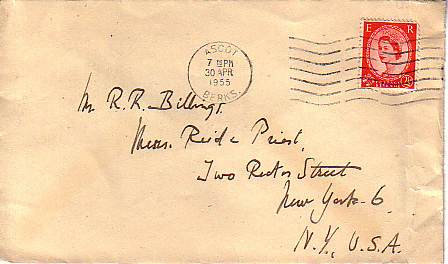 ASCOT
7 15 PM
30 APR
1955
BERKS.
E R
Mr R. R. Billings,
Messrs. Reid & Priest,
Two Rector Street
New York 6,
N.Y., U.S.A.